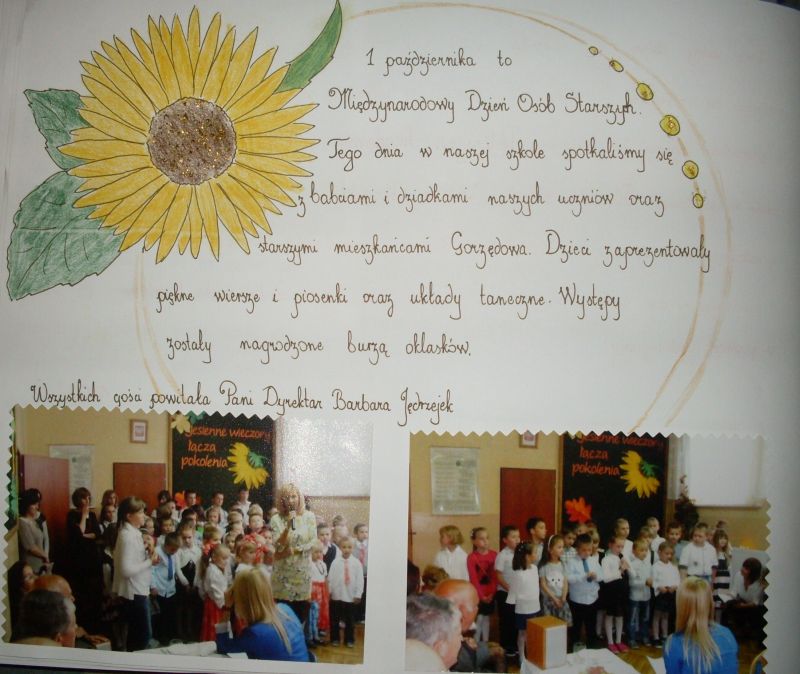 1 października to
Międzynarodowy Dzień Osób Starszych.
Tego dnia w naszej szkole spotkaliśmy się
z babciami i dziadkami naszych uczniów oraz
starszymi mieszkańcami Gorzędowa. Dzieci zaprezentowały
piękne wiersze i piosenki oraz układy taneczne. Występy
zostały nagrodzone burzą oklasków.
Wszystkich gości powitała Pani Dyrektor Barbara Jędrzejek
Jesienne wieczory
łączą
pokolenia
Jesienne wieczory
łączą
pokolenia